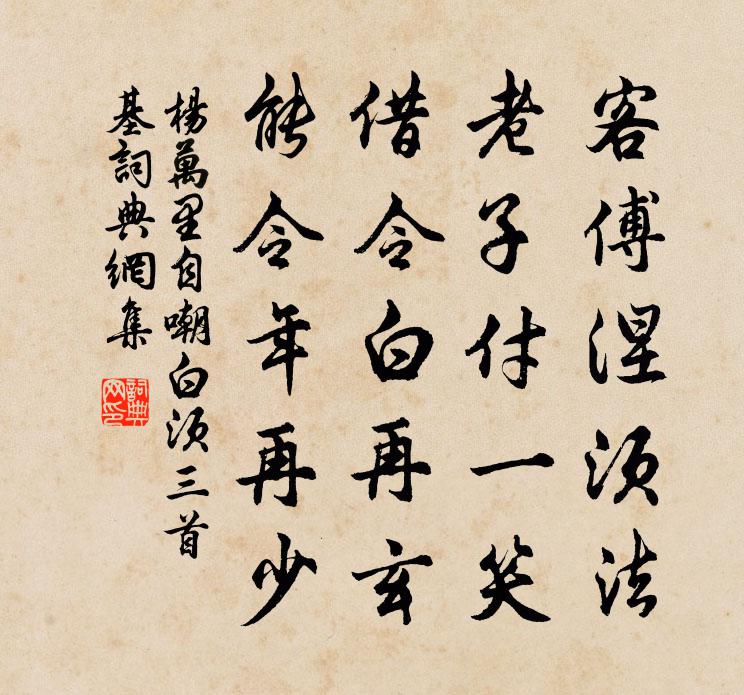 客傅涅须法
老子付一笑
借令白再玄
能令年再少
楊萬里自嘲白须三首
基詞典網集
詞典網印